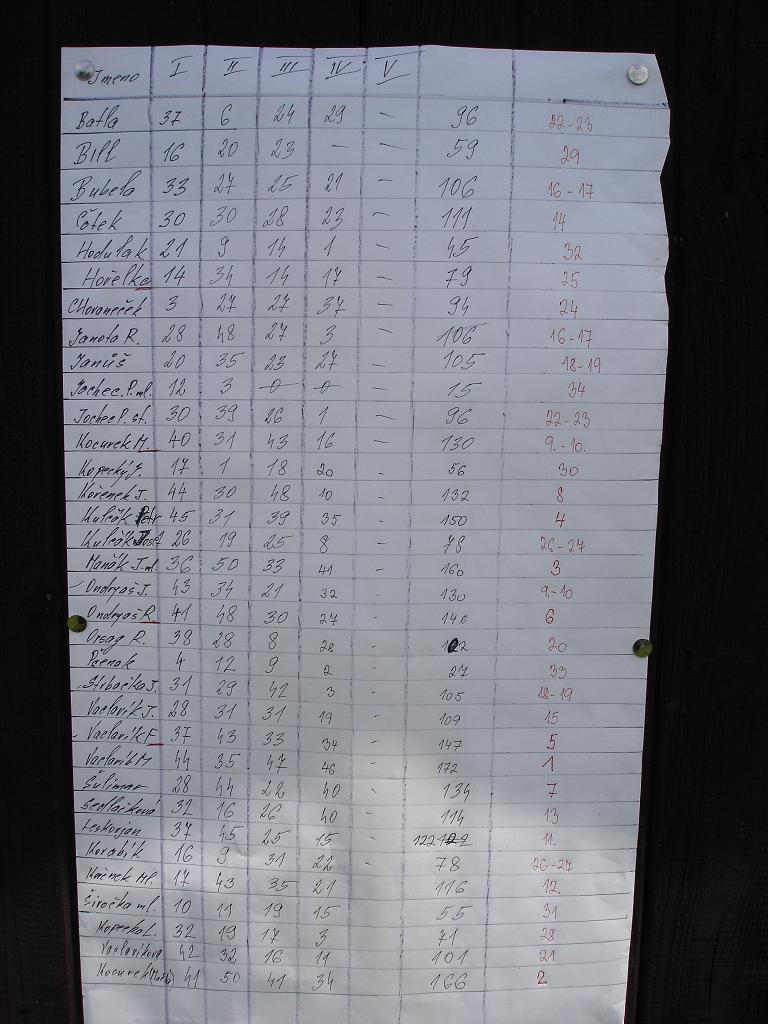 Jmeno I II III IV V
Batla 37 6 24 29 – 96 22-23
Bill 16 20 23 – – 59 29
Bubela 33 27 25 21 – 106 16-17
Čotek 30 30 28 23 – 111 14
Hodulak 21 9 14 1 – 45 32
Hořelka 14 34 14 17 – 79 25
CHovaneček 3 27 27 37 – 94 24
Janota R. 28 48 27 3 – 106 16-17
Januš 20 35 23 27 – 105 18-19
Jochec P. ml. 12 3 0 0 – 15 34
Jochec P. st. 30 39 26 1 – 96 22-23
Kocurek M. 40 31 43 16 – 130 9.-10.
Kopecký J. 17 1 18 20 – 56 30
Kořenek J. 44 30 48 10 – 132 8
Kulčák Petr 45 31 39 35 – 150 4
Kulčák Josef 26 19 25 8 – 78 26-27
Maňák J. ml 36 50 33 41 – 160 3
Ondryáš J. 43 34 21 32 - 130 9-10
Ondryáš R. 41 48 30 27 - 146 6
Orsag R. 38 28 8 28 - 102 20
4 12 9 2 - 27 33
Strbačka J. 31 29 42 3 - 105 18-19
Vaclavik J. 28 31 31 19 - 109 15
Vaclavik F. 37 43 33 34 - 147 5
Vaclavik M 44 35 47 46 - 172 1
Šulimar 28 44 22 40 - 134 7
Sedlačková 32 16 26 40 - 114 13
Leskovjan 37 45 25 15 - 122 11.
Korabik 16 9 31 22 - 78 26-27
Kořenek Ml. 17 43 35 21 116 12.
Širočka ml. 10 11 19 15 55 31
Kopecka L. 32 19 17 3 71 28
Vaclavikova 42 32 16 11 101 21
Kocurek 41 50 41 34 166 2